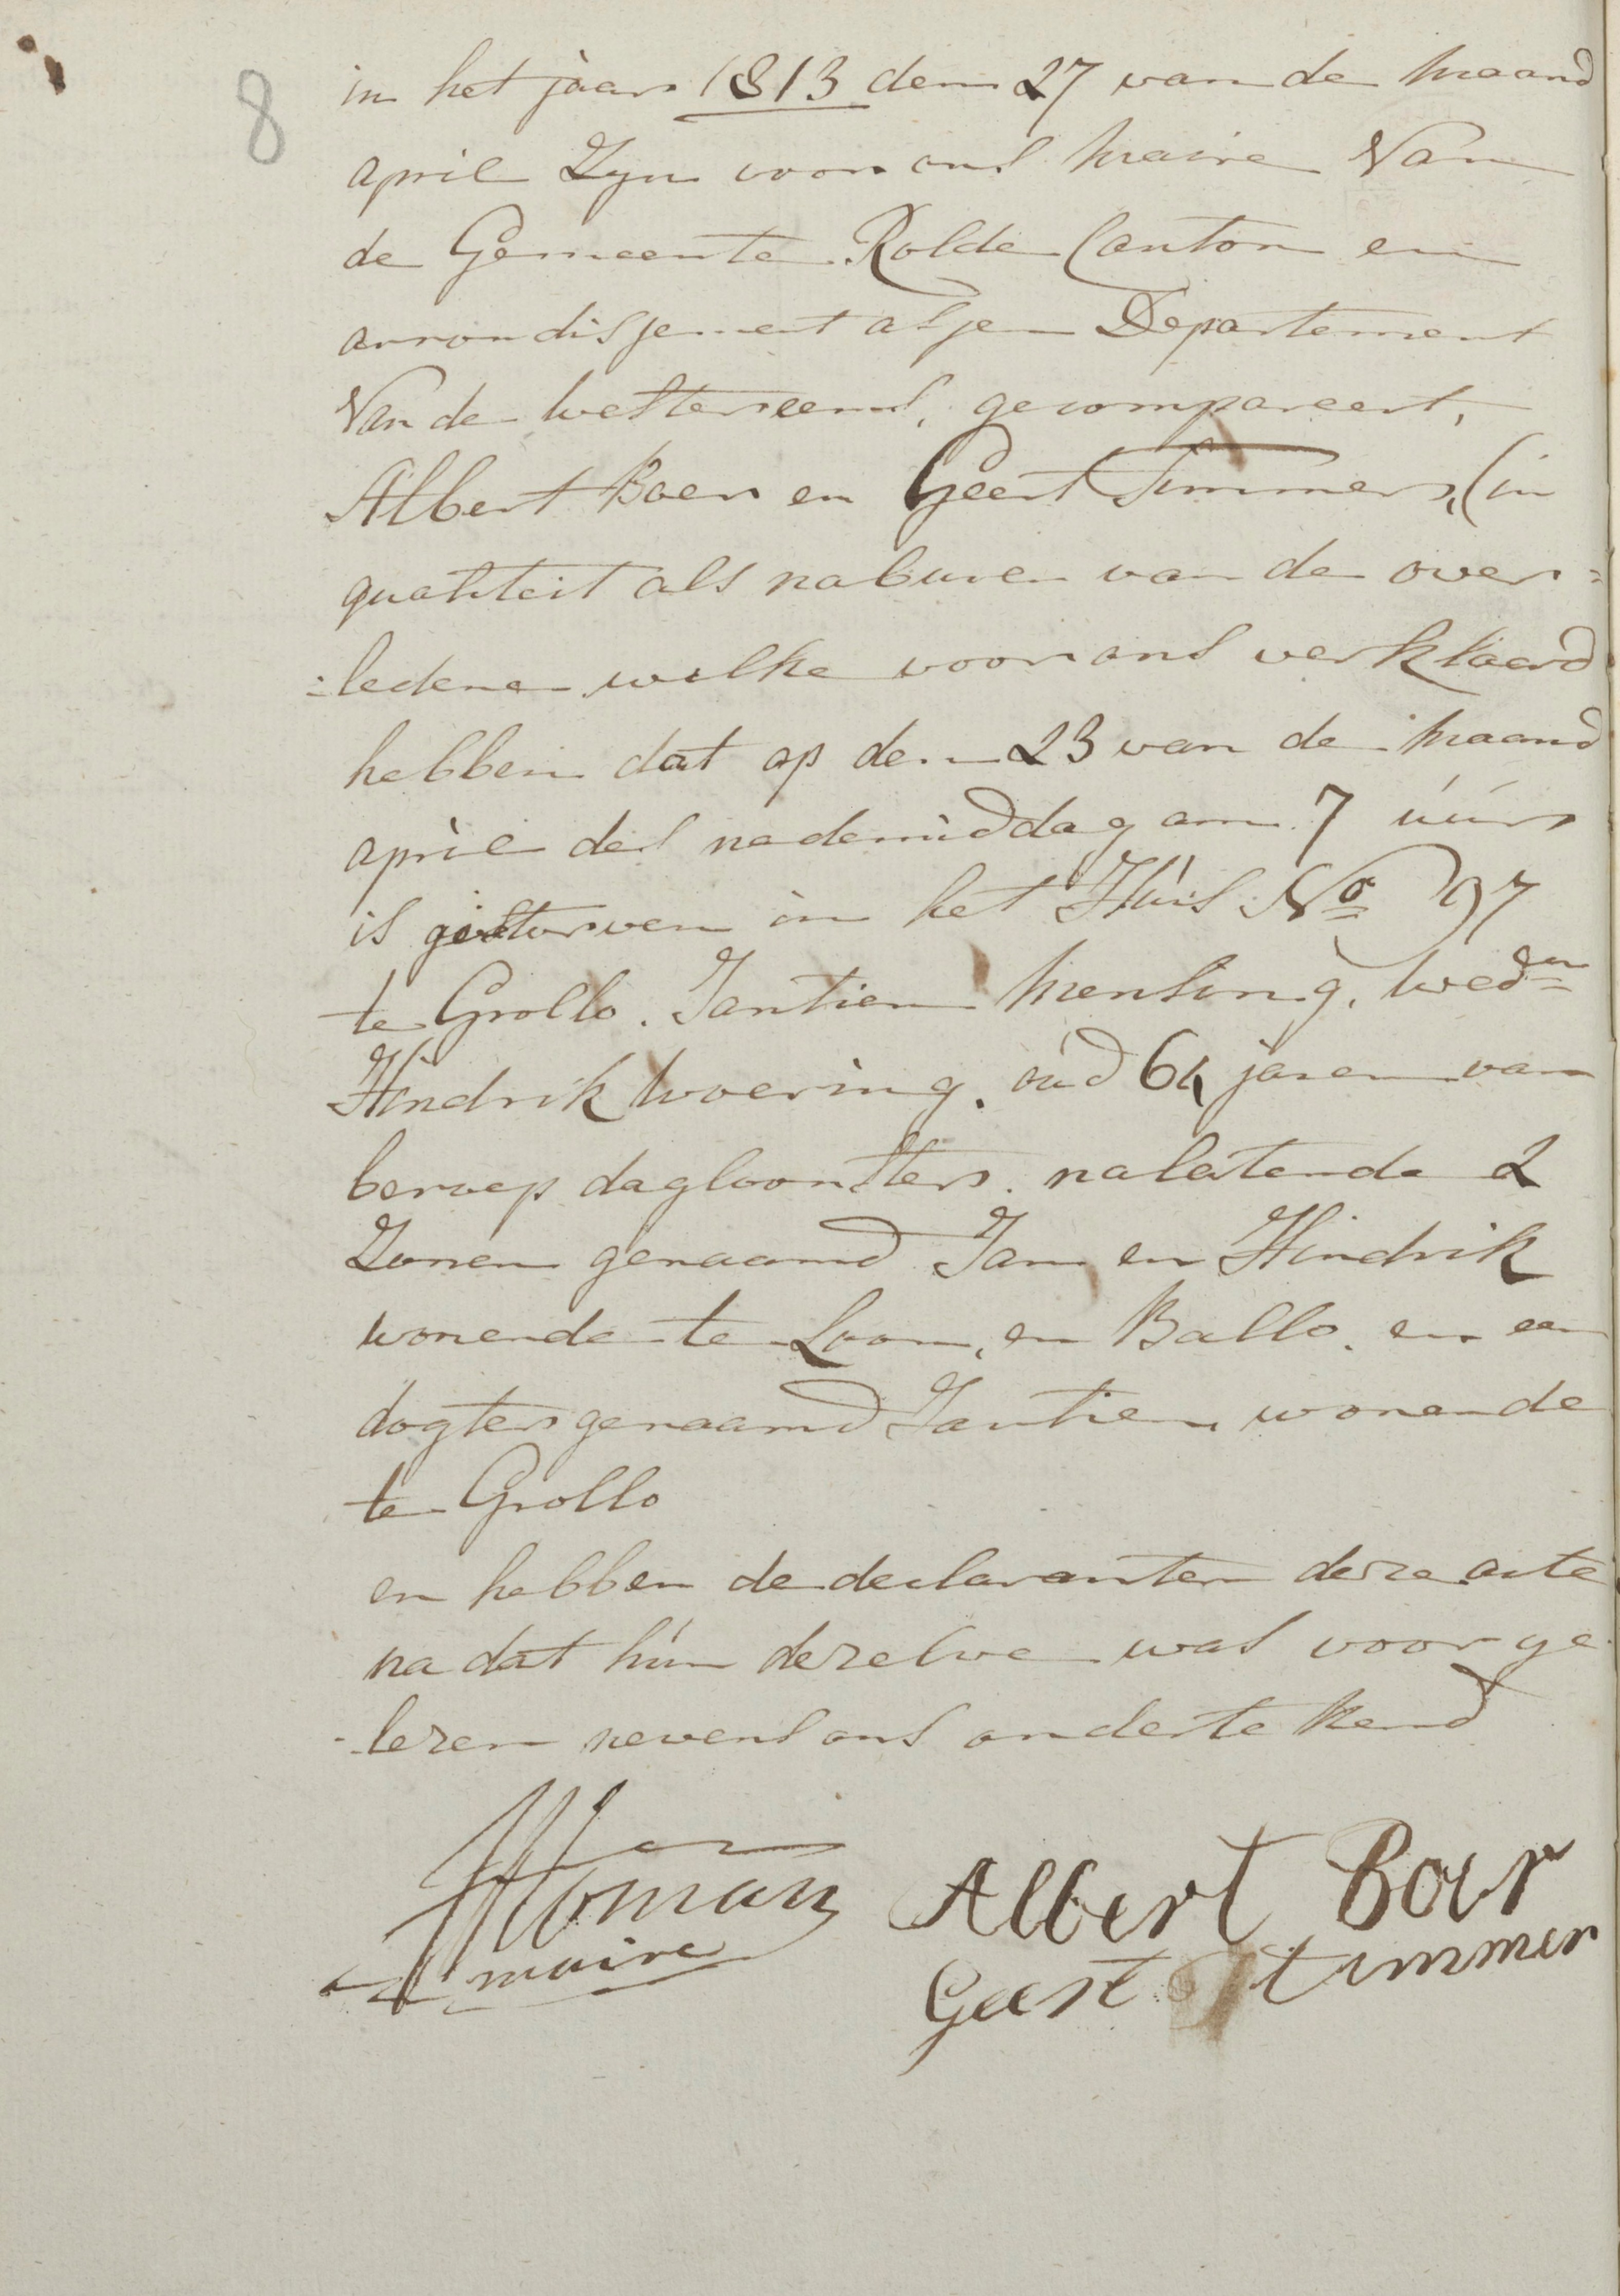 8
in het jaar 1813 den 27 van de maand
april Zyn voor ons maire Van
de Gemeente Rolde Canton en
arrondissement assen Departement
Van de Westereems, gecompareert,
Albert Boer en Geert Timmer, (in
qualiteit als naburen van de over=
=ledene welke voor ons verklaard
hebben dat op den 23 van de maand
april des nademiddag om 7 uúrs
is gestorven in het Húis No 97
te Grollo. Jantien Mensing, wedn
Hindrik Woering. oúd 64 jaren van
beroep dagloonster. nalatende 2
Zonen genaamd Jan en Hindrik
wonende te Loon, en Ballo. en een
dogter genaamd Jantien wonende
te Grollo
en hebben de declaranten deze acte
na dat hún dezelve was voorge
-lezen nevens ons ondertekend
Homan
maire
Albert Boer
Geert timmer